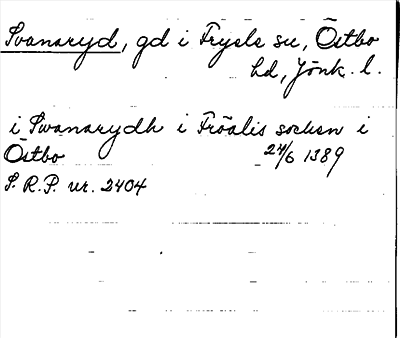 Svanaryd, gd i Fryele sn, Östbo
hd, Jönk. l.
i Swanarydh i Fröalis soken i
Östbo 24/6 1389
S.R.P. nr. 2404